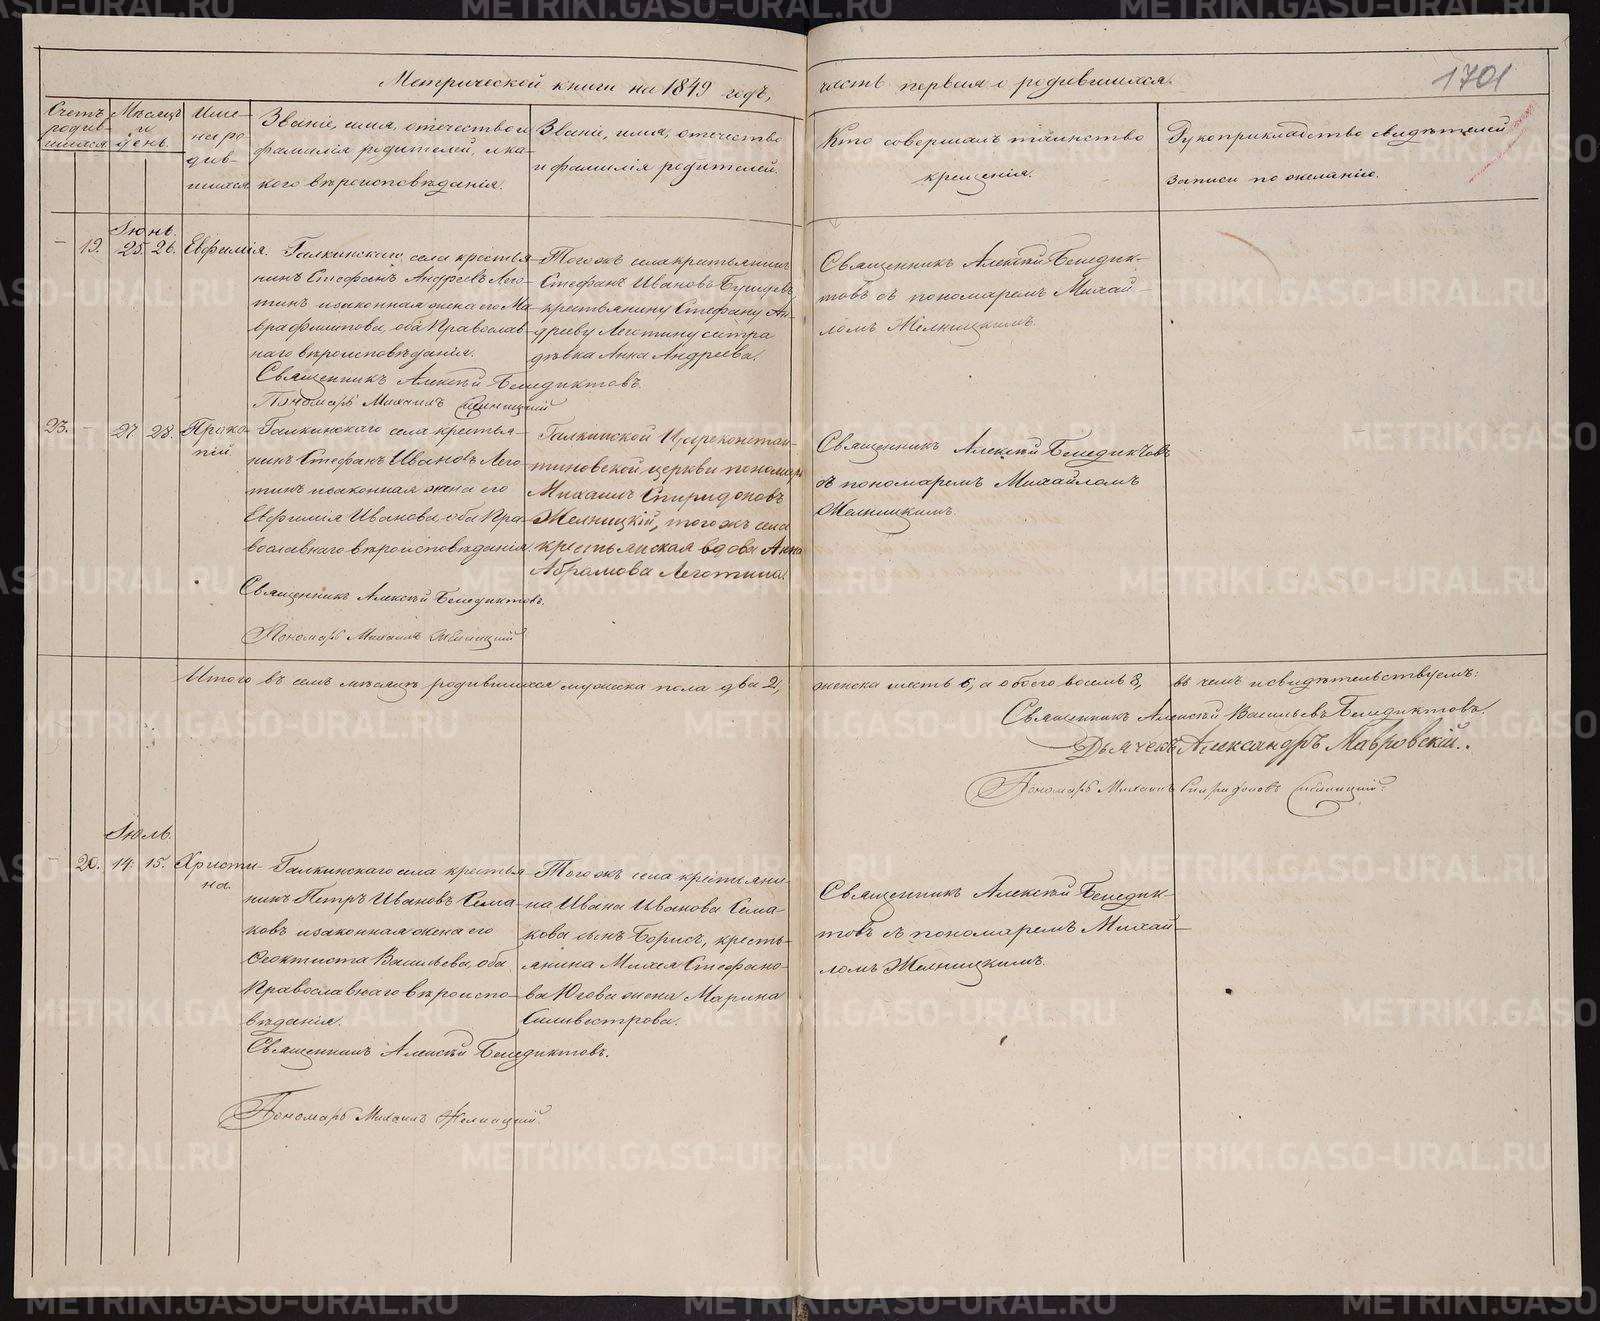 Метрической книги на 1849 годъ, часть первая о родившихся.
1701
Счетъ родив-шихся.
Мѣсяцъ и день.
Име-на ро-див-шихся
Званіе, имя, отчество и
фамилія родителей, и ка-
кого вѣроисповѣданія.
Званіе, имя, отчество
и фамилія родителей.
Кто совершалъ таинство
крещенія.
Рукоприкладство свидѣтелей
записи по желанію.
Іюнь.
– 19. 25. 26. Евфимія.
Галкинскаго села крестья-
нинъ Стефанъ Андреевъ Лего-
тинъ и законная жена его Ма-
вра Филиппова, оба Православ-
наго вѣроисповѣданія.
Священникъ Алексѣй Бенедиктовъ.
Пономарь Михаилъ
Того жъ села крестьянинъ
Стефанъ Ивановъ
крестьянину Стефану Ан-
дрееву Леготину сестра
дѣвка Анна Андреева.
Священникъ Алексѣй Бенедик-
товъ съ пономаремъ Михай-
ломъ Желницкимъ.
23. – 27. 28. Проко-
пій.
Галкинскаго села крестья-
нинъ Стефанъ Ивановъ Лего-
тинъ и законная жена его
Евфимія Иванова, оба Пра-
вославнаго вѣроисповѣданія.
Священникъ Алексѣй Бенедиктовъ.
Пономарь Михаилъ Желницкій
Галкинской Цареконстан-
тиновской церкви пономарь
Михаилъ Спиридоновъ
Желницкій, того жъ села
крестьянская вдова Анна
Абрамова Леготина.
Священникъ Алексѣй Бенедиктовъ
съ пономаремъ Михайломъ
Желницкимъ.
Итого въ семъ мѣсяцѣ родившихся мужеска пола два 2, женска шесть 6, а обоего восемь 8, въ чемъ и свидѣтельствуемъ:
Священникъ Алексѣй Васильевъ Бенедиктовъ.
Дьячекъ Александръ Мавровскій.
Пономарь Михаилъ Спиридоновъ Желницкій.
Іюль.
– 20. 14. 15. Христи-
на.
Галкинскаго села крестья-
нинъ Петръ Ивановъ Сема-
ковъ и законная жена его
Феоктиста Васильева, оба
Православнаго вѣроиспо-
вѣданія.
Священникъ Алексѣй Бенедиктовъ.
Пономарь Михаилъ Желницкій.
Того жъ села крестьяни-
на Ивана Иванова Сема-
кова сынъ Борисъ, кресть-
янина Михея Стефано-
ва Югова жена Марина
Силивестрова.
Священникъ Алексѣй Бенедик-
товъ съ пономаремъ Михай-
ломъ Желницкимъ.
METRIKI.GASO-URAL.RU